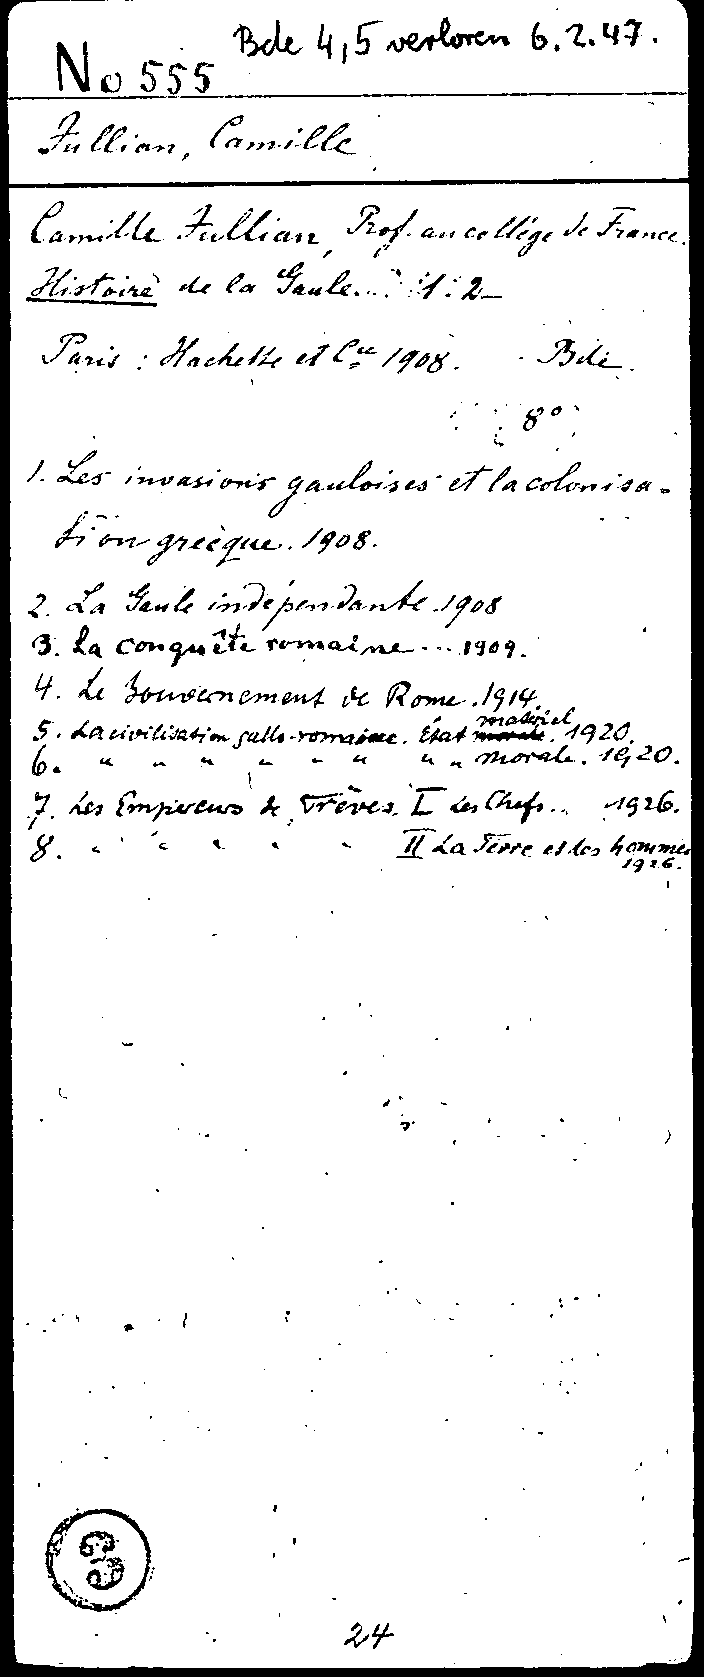 Bde 4,5 verloren 6.2.47.
No 555
Jullian, Camille
Camille Jullian, Prof. au collége de France.
Histoire de la Gaule... 1. 2
Paris : Hachette et Cie 1908. Bde.
8°
1. Les invasions gauloises et la colonisa-
tion grècque. 1908.
2. La Gaule indépendante. 1908
3. La conquête romaine... 1909.
4. Le Gouvernement de Rome. 1914.
materiel
5. La civilisation gallo-romaine. État morale. 1920.
6. " " " " " " " " morale. 1920.
7. Les Empereurs de Trêves. I Les Chefs.. 1926.
8. " " " " " II La Terre et les hommes
1926.
3
24